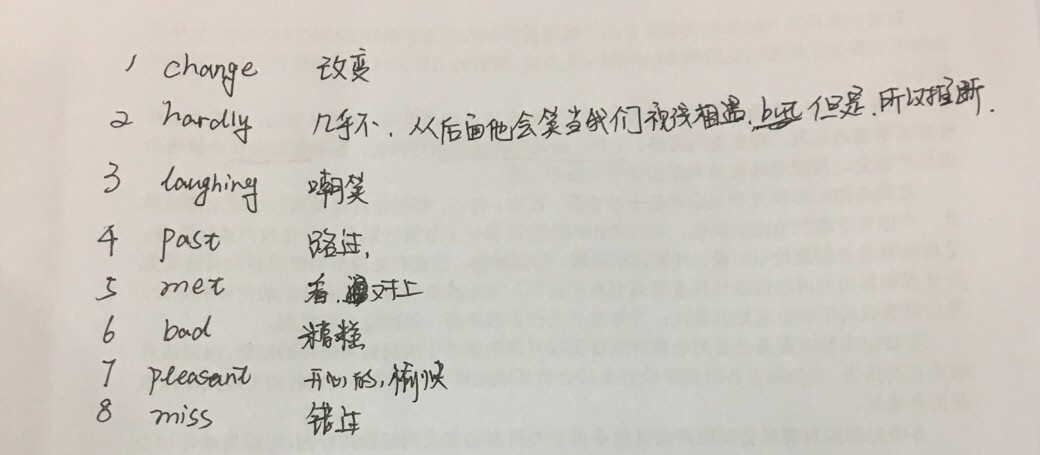 1 change 改变
2 hardly 几乎不, 从后面他会笑当我们视线相遇, but 但是, 所以推断.
3 laughing 嘲笑
4 past 路过,
5 met 看, 对上
6 bad 糟糕
7 pleasant 开心的, 愉快
8 miss 错过